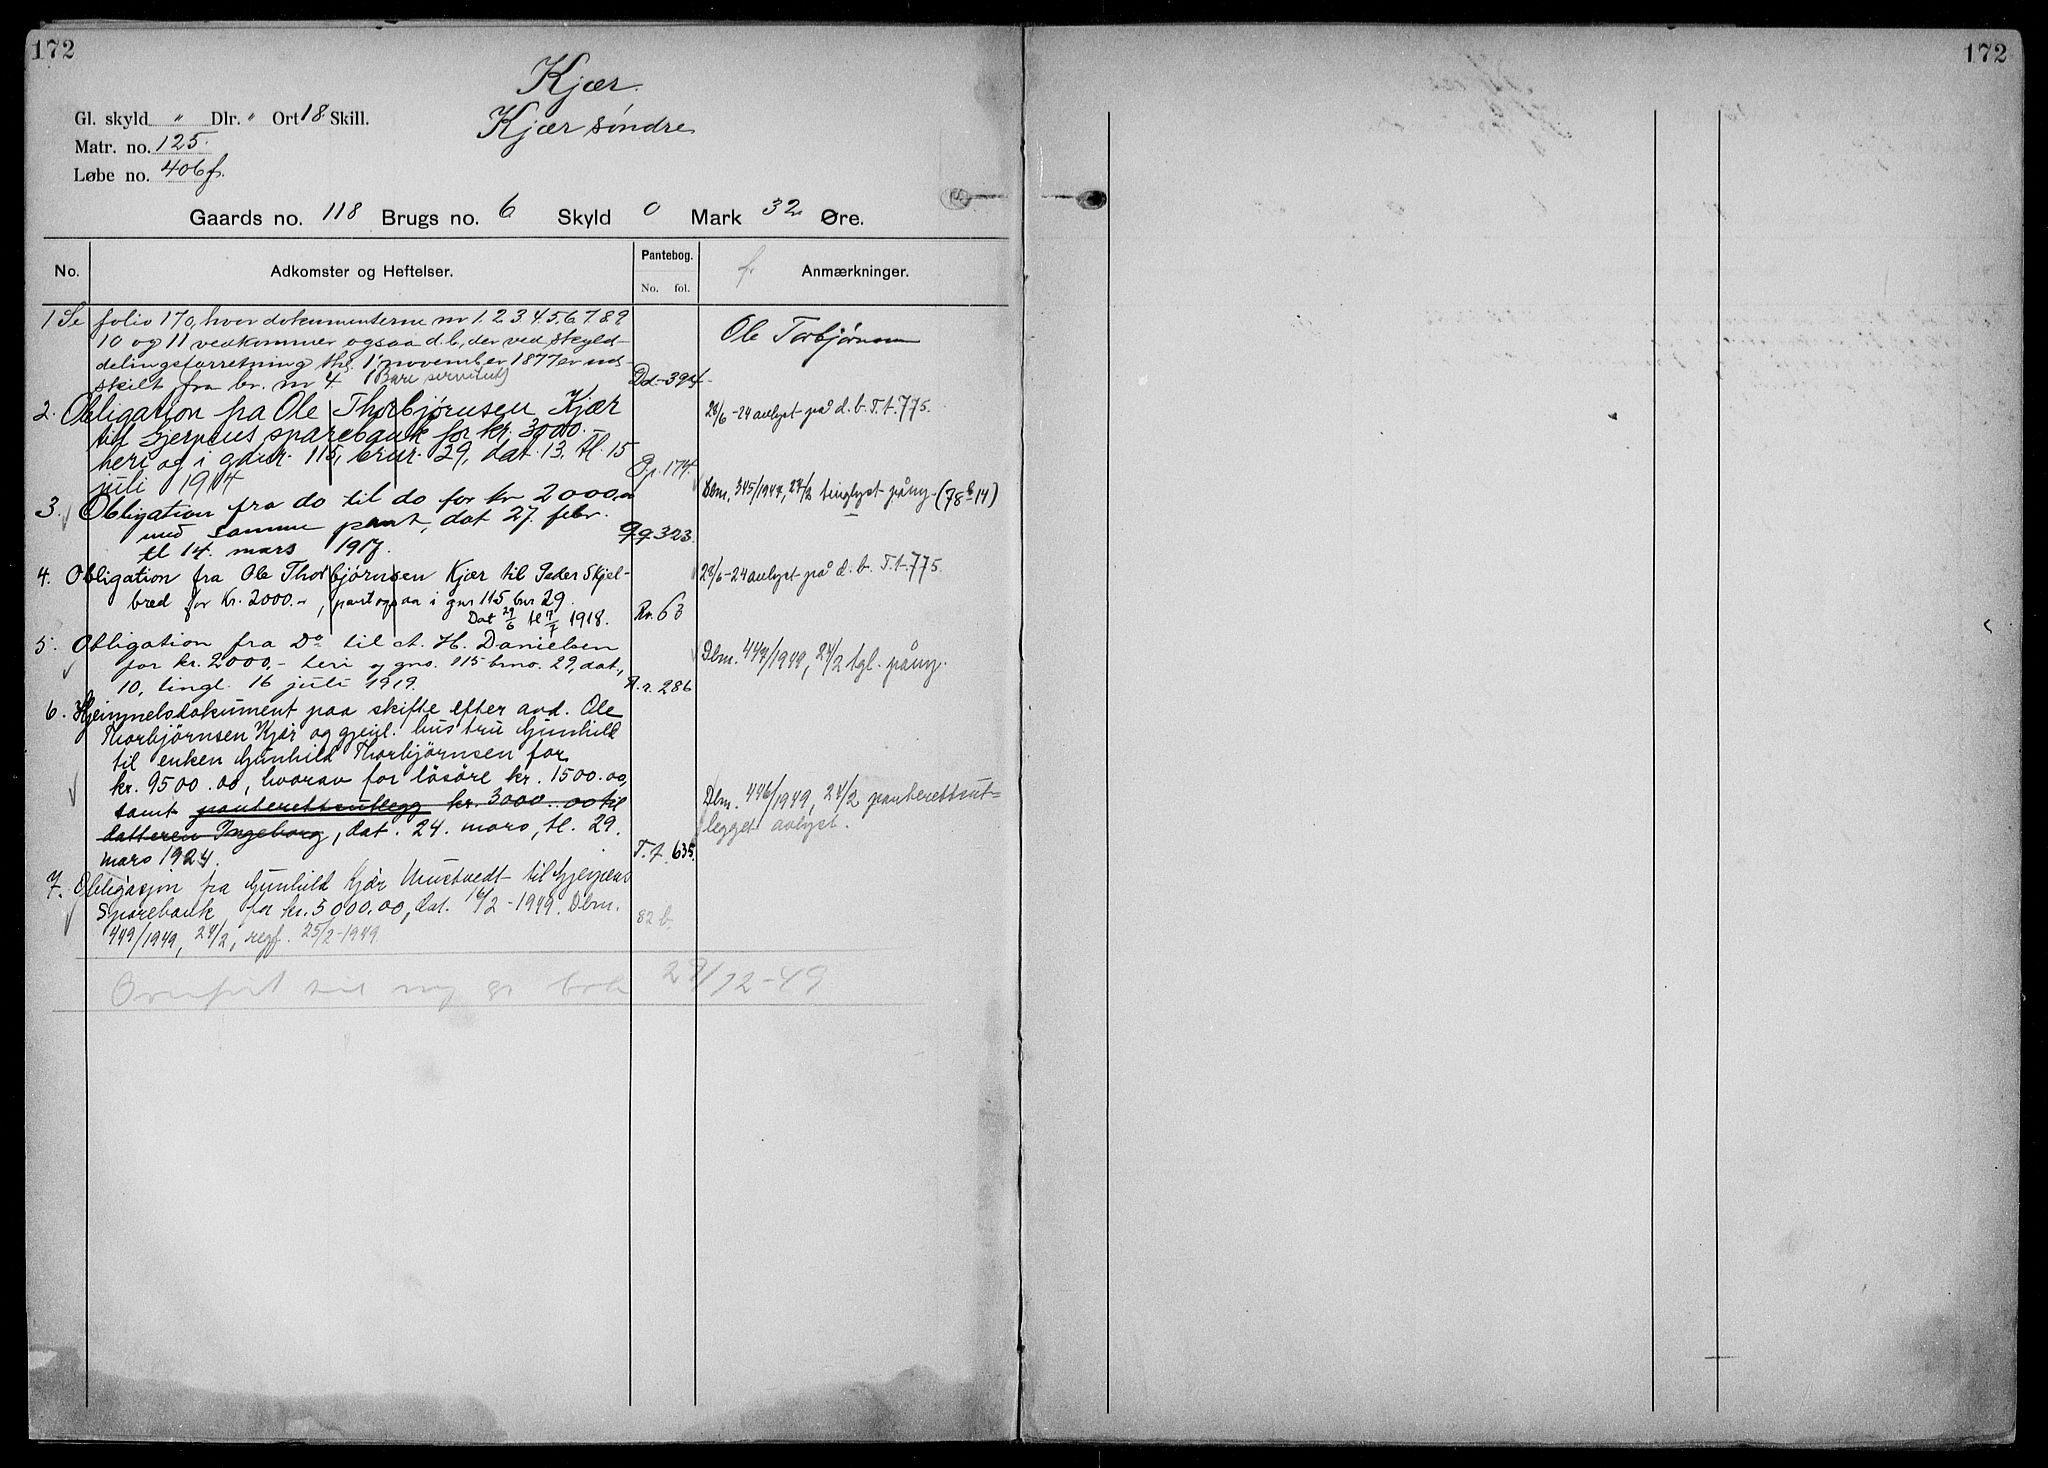 172
172
Kjær.
Kjær søndre
Gl. skyld " Dlr. " Ort 18 Skill.
Matr. no. 125.
Løbe no. 406f.
Gaards no. 118 Brugs no. 6 Skyld 0 Mark 32 Øre.
No. Adkomster og Heftelser. Pantebog. No. fol. Anmærkninger.
1 Se folio 170, hvor dokumenterne nr 1. 2. 3. 4. 5. 6. 7. 8. 9
10 og 11 vedkommer ogsaa d.b., der ved skyld-
delingsforretning thl. 1 november 1877 er ud-
skilt fra br. nr 4. (Bare servitut) Dd-394-
Ole Torbjørnsen
2. Obligation fra Ole Thorbjørnsen Kjær
til Gjerpens sparebank for kr. 3000.-
heri og i gnr. 115, brnr. 29, dat. 13. tl. 15
juli 1914 P.p. 174.
28/6-24 avlyst på d. b. T.t. 775.
3. Obligation fra do til do for kr 2000.-
med samme pant, dat 27. febr.
tl 14. mars 1917. Q.q. 323.
Dbnr. 345/1947, 27/2 tinglyst påny. (78 b-14)
4. Obligation fra Ole Thorbjørnsen Kjær til Peder Skjel-
bred for Kr. 2000.-, pant ogsaa i gnr 115 bnr 29.
Dat 29/6 tl 17/7 1918. Rr. 63
28/6-24 avlyst på d. b. T.t. 775.
5. Obligation fra Do til A. H. Danielsen
for kr. 2000,- heri og gno. 115 brno. 29, dat.,
10, tingl. 16 juli 1919. R.r. 286
Dbnr. 447/1949, 24/2 tgl. påny.
6. Hjemmelsdokument paa skifte efter avd. Ole
Thorbjørnsen Kjær og gjenl. hustru Gunhild
til enken Gunhild Thorbjørnsen for
kr. 9500.00, hvorav for løsøre kr. 1500.00,
samt panterettsutlegg kr. 3000.00 til
datteren Ingeborg, dat. 24. mars, tl. 29.
mars 1924. T.t. 635.
Dbnr. 446/1949, 24/2 panterettsut-
legget avlyst.
7. Obligasjon fra Gunhild Kjær til Gjerpens
Sparebank, for kr. 5000.00, dat. 16/2-1949. Dbnr.
449/1949, 24/2, regf. 25/2-1949. 82 b.
Overført til ny gr bok 29/12-49